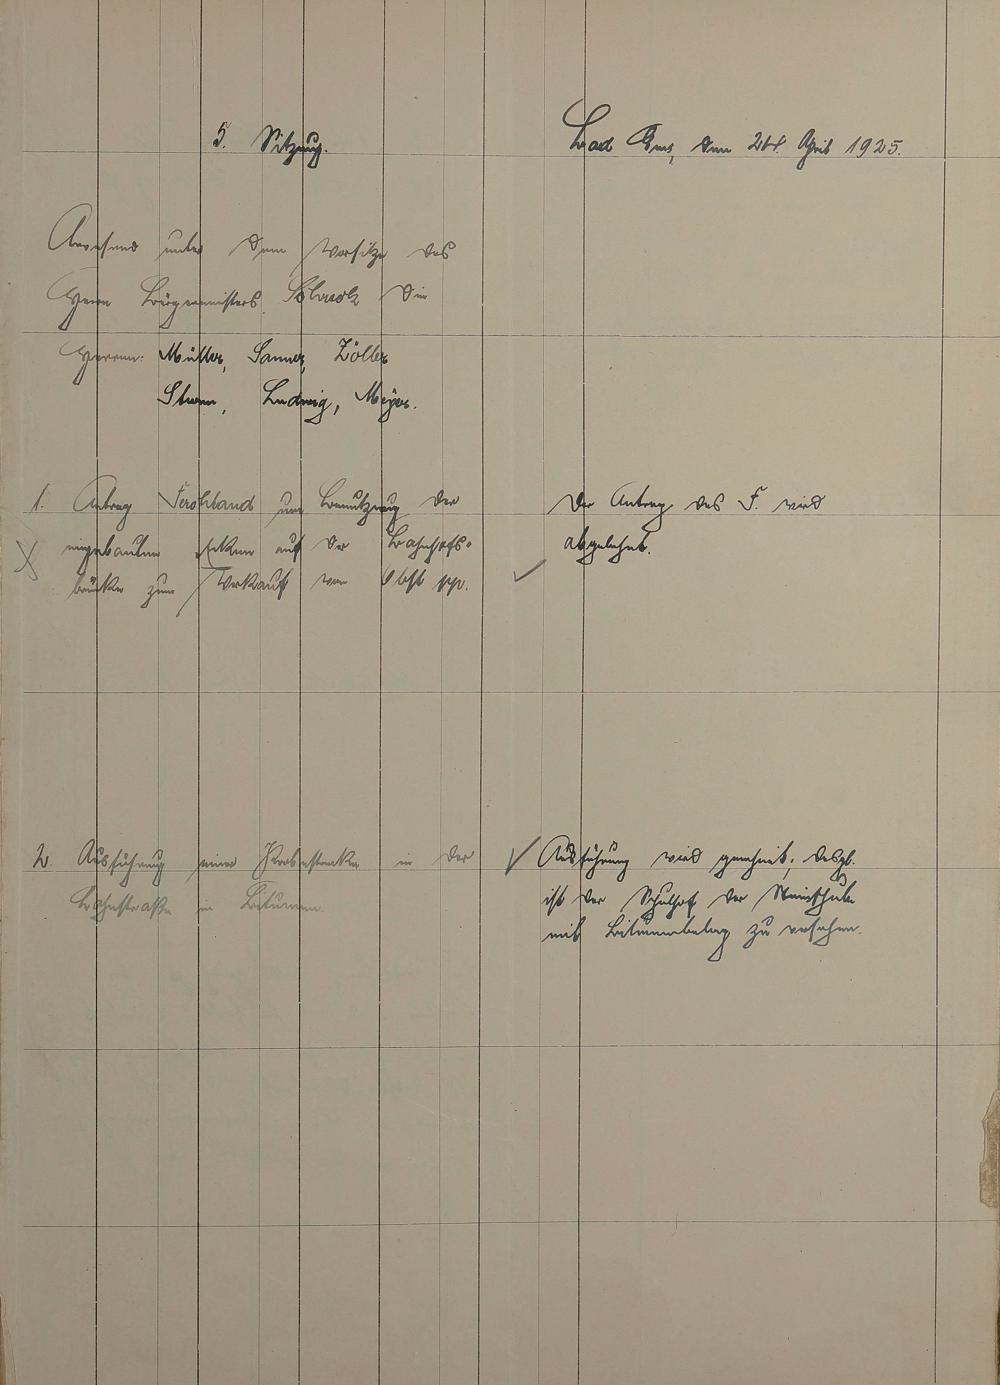 5. Sitzung.
Bad Ems, den 24. April 1925.
Anwesend unter dem Vorsitze des
Herrn Bürgermeisters die
Herren: Müller, Sanner, Zöller
Sturm, Ludwig, Meyer.
1. Antrag um Benutzung der
eingebauten Erker auf der Bahnhofs-
brücke zum Verkauf von Obst pp.
Der Antrag des F. wird
abgelehnt.
2. Ausführung einer Probestrecke in der
Bahnstraße in Bitumen.
Ausführung wird genehmt; desgl.
ist der Schulhof der
mit Bitumenbelag zu versehen.